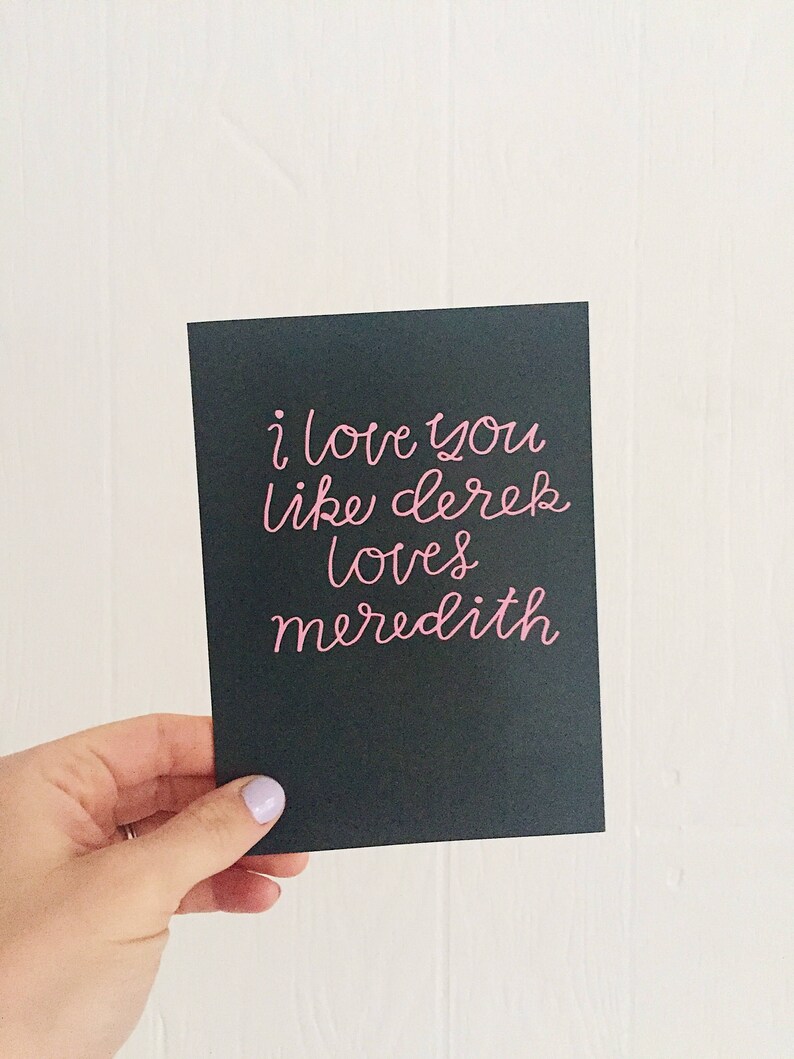 i love you
like derek
loves
meredith